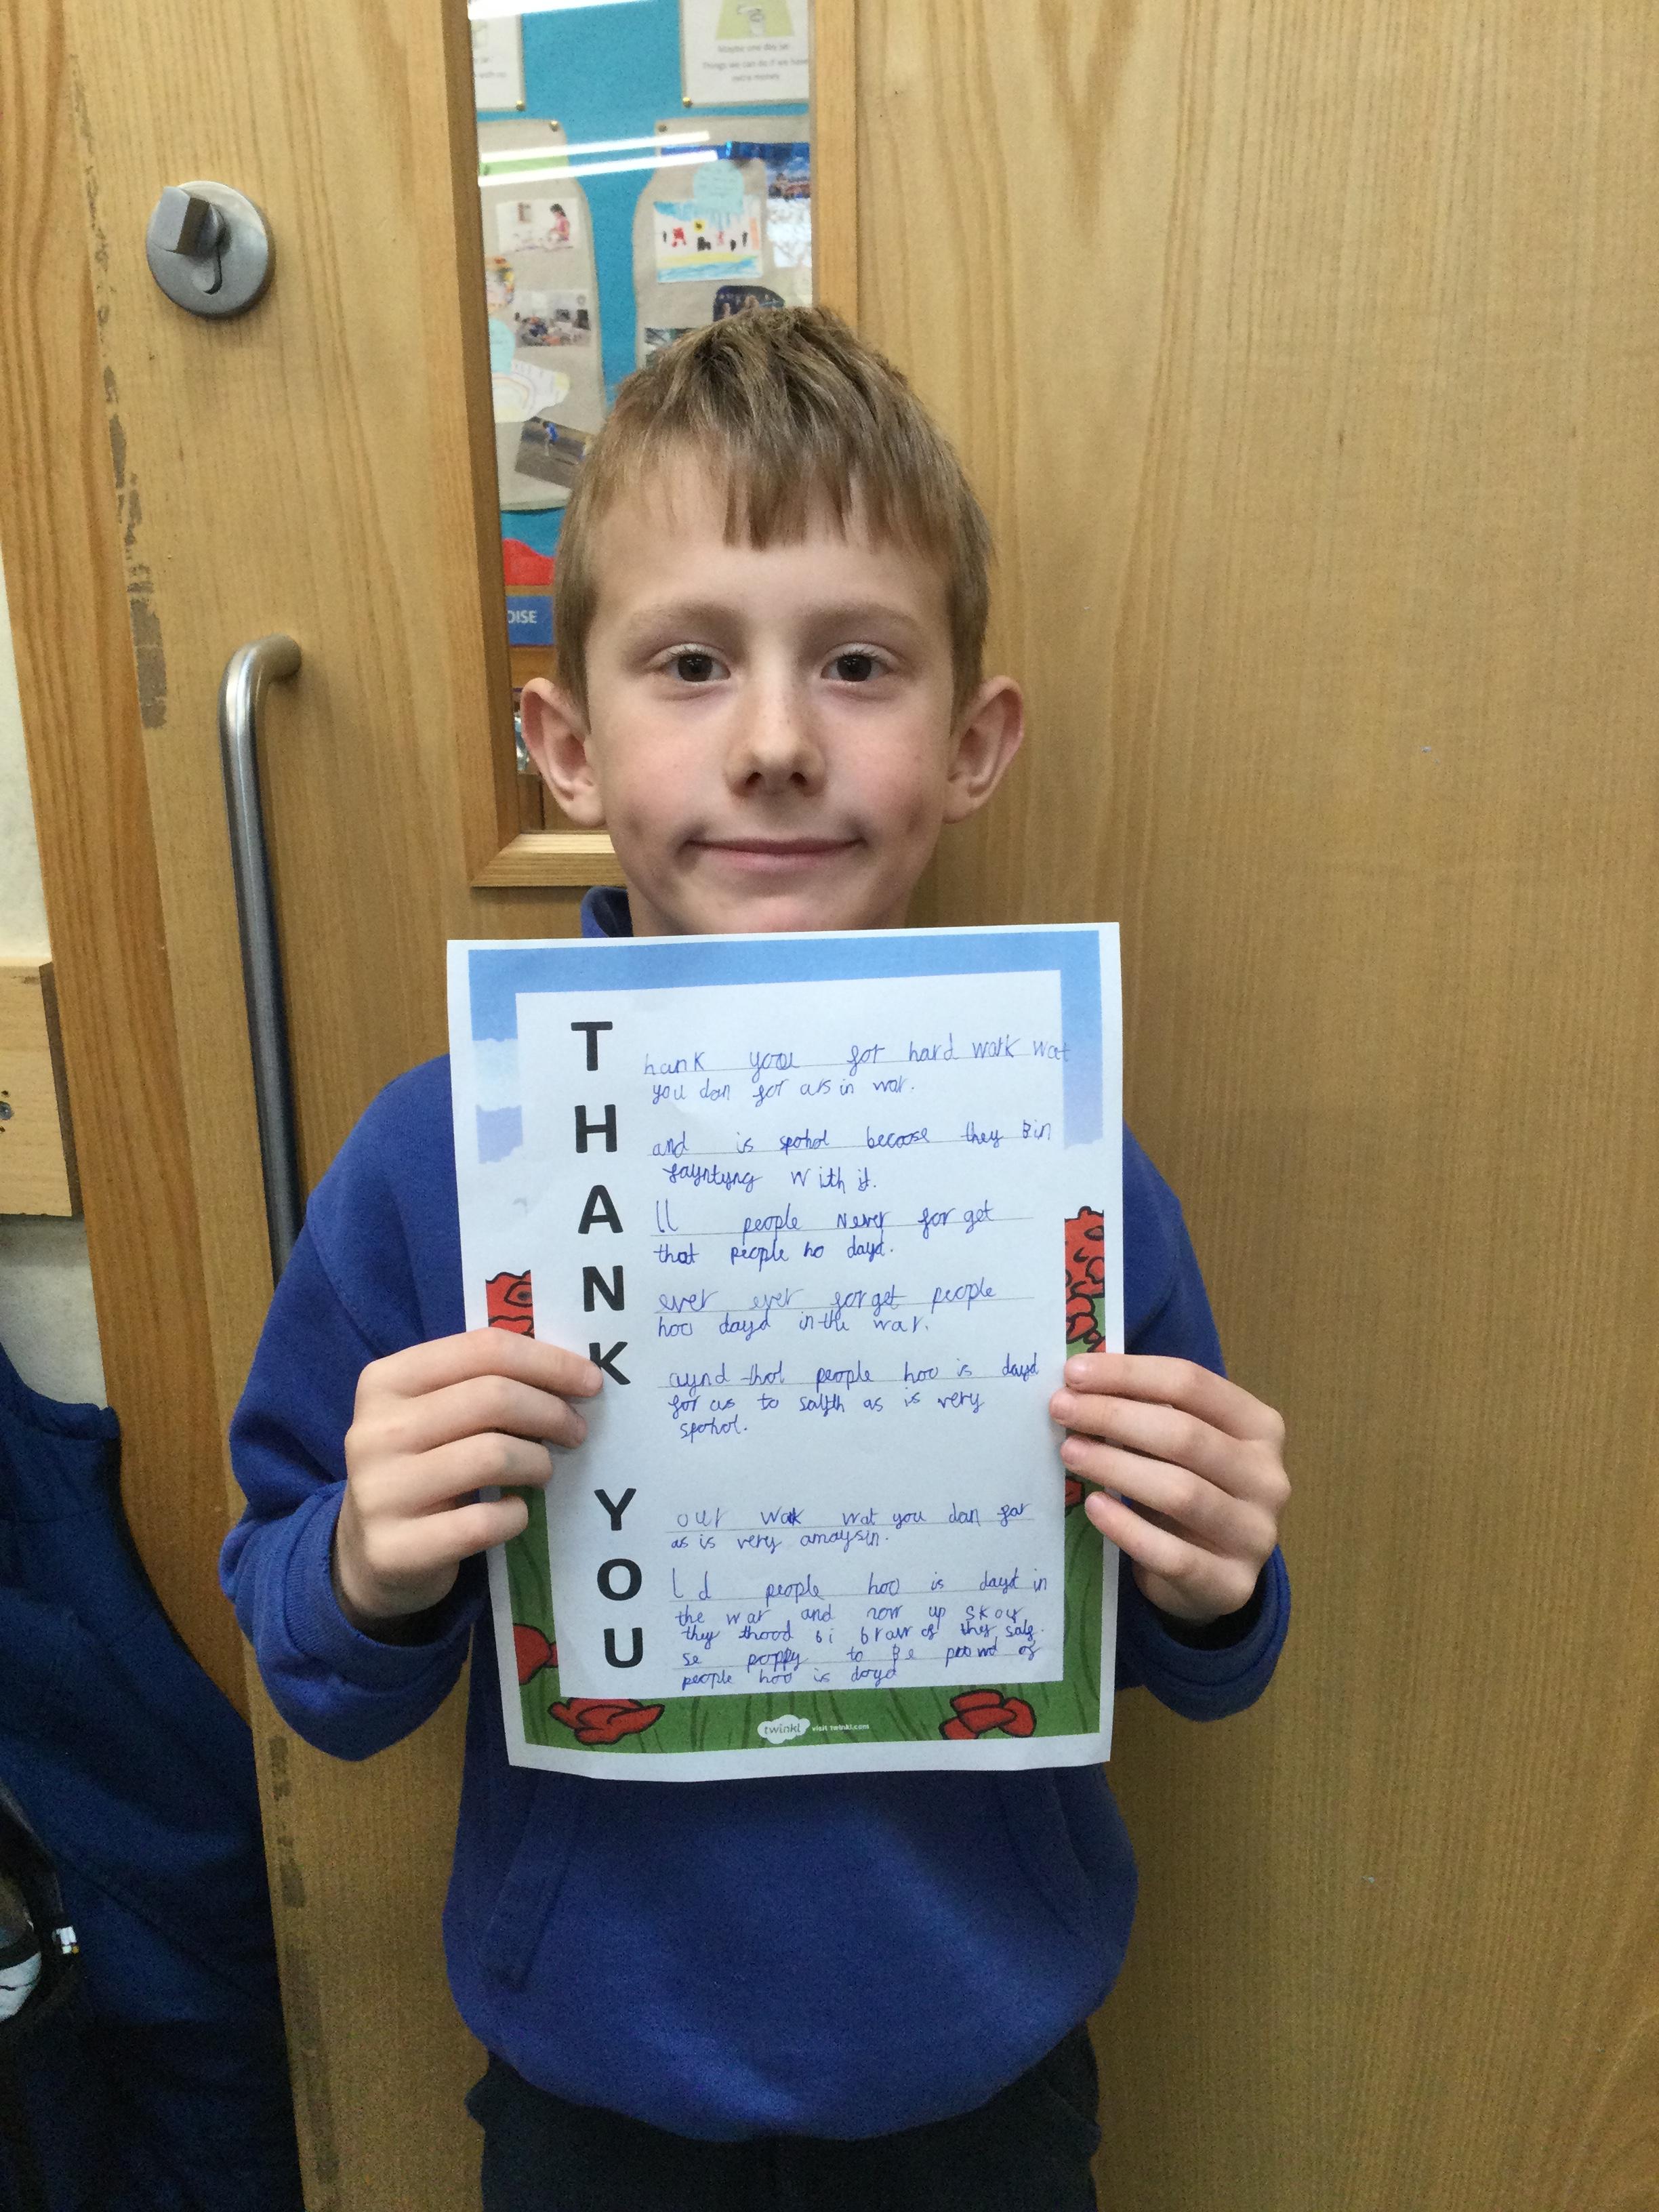 Maybe one day we
Things we can do if we have
extra money
OISE
T hank yoou for hard work wat
you dan for aus in war.
H and is spohol becoose they Bin
fayntyng with it.
A ll people Never for get
that people ho dayd.
N ever ever for get people
hoo dayd in the war.
K aynd thot people hoo is dayd
for us to salfth as is very
spohol.
Y our wok wat you dan for
as is very amaysin.
O l d people hoo is dayd in
the war and now up skoy
they thood bi brave of they salf.
U se poppy to Be poowd of
people hoo is dayd
twinkl visit twinkl.com